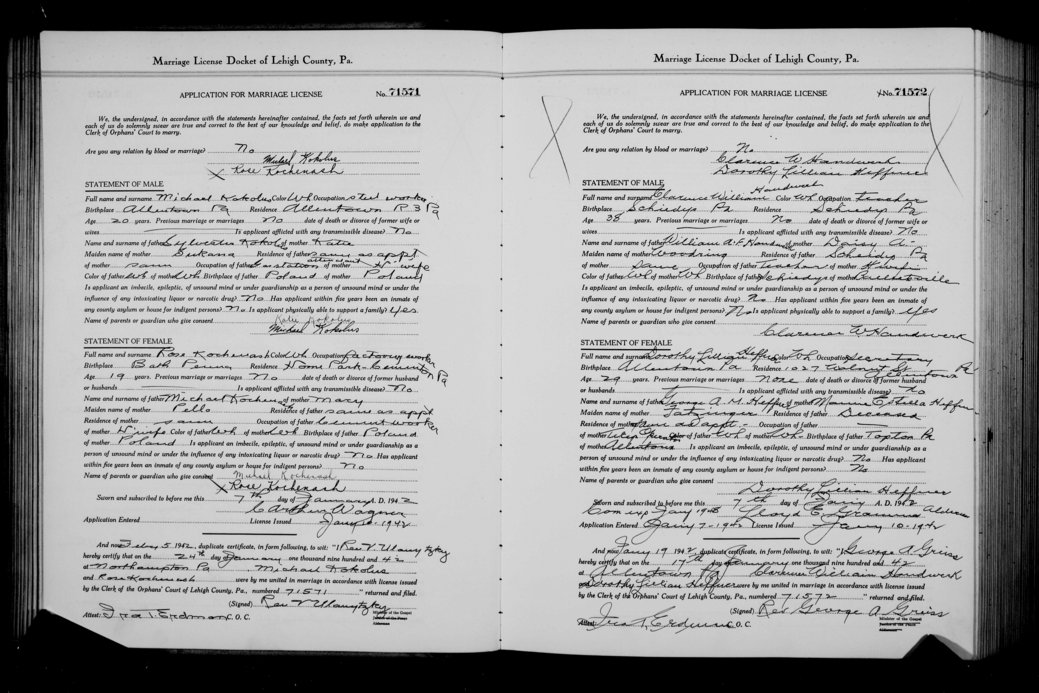 Marriage License Docket of Lehigh County, Pa.
APPLICATION FOR MARRIAGE LICENSE No. 71571
We, the undersigned, in accordance with the statements hereinafter contained, the facts set forth wherein we and
each of us do solemnly swear are true and correct to the best of our knowledge and belief, do make application to the
Clerk of Orphans' Court to marry.
Are you any relation by blood or marriage? No
Michael Kokolus
X Rose Kochenash
STATEMENT OF MALE
Full name and surname Michael Kokolus Color Wh Occupation steel worker
Birthplace Allentown Pa Residence Allentown R 3 Pa
Age 20 years. Previous marriage or marriages No date of death or divorce of former wife or
wives Is applicant afflicted with any transmissible disease? No
Name and surname of father Sylvester Kokolus of mother Katie
Maiden name of mother Residence of father same as appt
of mother same Occupation of father Gas station attendant of mother H wife
Color of father Wh of mother Wh Birthplace of father Poland of mother Poland
Is applicant an imbecile, epileptic, of unsound mind or under guardianship as a person of unsound mind or under the
influence of any intoxicating liquor or narcotic drug? No Has applicant within five years been an inmate of
any county asylum or house for indigent persons? No Is applicant physically able to support a family? Yes
Name of parents or guardian who give consent Katie Kokolus
Michael Kokolus
STATEMENT OF FEMALE
Full name and surname Rose Kochenash Color Wh Occupation Factory worker
Birthplace Bath Penna Residence Home Park Cementon Pa
Age 19 years. Previous marriage or marriages No date of death or divorce of former husband
or husbands Is applicant afflicted with any transmissible disease? No
Name and surname of father Michael Kochenash of mother Mary
Maiden name of mother Pello Residence of father same as appt
Residence of mother same Occupation of father Cement worker
of mother H wife Color of father Wh of mother Wh Birthplace of father Poland
of mother Poland Is applicant an imbecile, epileptic, of unsound mind or under guardianship as a
person of unsound mind or under the influence of any intoxicating liquor or narcotic drug? No Has applicant
within five years been an inmate of any county asylum or house for indigent persons? No
Name of parents or guardian who give consent Michael Kochenash
X Rose Kochenash
Sworn and subscribed to before me this 7th day of January A. D. 1942
C Arthur Wagner
Application Entered License Issued Jany 10-1942
And now Feby 5 1942, duplicate certificate, in form following, to wit: "I Rev V.
hereby certify that on the 24th day January one thousand nine hundred and 42
at Northampton Pa Michael Kokolus
and Rose Kochenash were by me united in marriage in accordance with license issued
by the Clerk of the Orphans' Court of Lehigh County, Pa., numbered 71571 " returned and filed.
(Signed) Rev V
Attest: Ira T. Erdman C. O. C.
Minister of the Gospel
Justice of the Peace
Alderman
Marriage License Docket of Lehigh County, Pa.
APPLICATION FOR MARRIAGE LICENSE X No. 71572
We, the undersigned, in accordance with the statements hereinafter contained, the facts set forth wherein we and
each of us do solemnly swear are true and correct to the best of our knowledge and belief, do make application to the
Clerk of Orphans' Court to marry.
Are you any relation by blood or marriage? No
Clarence W Handwerk
Dorothy Lillian Heffner
STATEMENT OF MALE
Full name and surname Clarence William Handwerk Color Wh Occupation teacher
Birthplace Schiedys Pa Residence Schiedys Pa
Age 38 years. Previous marriage or marriages No date of death or divorce of former wife or
wives Is applicant afflicted with any transmissible disease? No
Name and surname of father William A. F. Handwerk of mother Daisy A.
Maiden name of mother Woodring Residence of father Scheidys Pa
of mother same Occupation of father teacher of mother H wife
Color of father Wh of mother Wh Birthplace of father Schiedys of mother
Is applicant an imbecile, epileptic, of unsound mind or under guardianship as a person of unsound mind or under the
influence of any intoxicating liquor or narcotic drug? No Has applicant within five years been an inmate of
any county asylum or house for indigent persons? No Is applicant physically able to support a family? Yes
Name of parents or guardian who give consent
Clarence W Handwerk
STATEMENT OF FEMALE
Full name and surname Dorothy Lillian Heffner Color Wh Occupation secretary
Birthplace Allentown Pa Residence 1027 Walnut St Allentown Pa
Age 29 years. Previous marriage or marriages None date of death or divorce of former husband
or husbands Is applicant afflicted with any transmissible disease? No
Name and surname of father George A. H. Heffner of mother Mamie Estella Heffner
Maiden name of mother Jatzinger Residence of father Deceased
Residence of mother Same as appt. Occupation of father
of mother Color of father Wh of mother Wh Birthplace of father Topton Pa
of mother Allentown Is applicant an imbecile, epileptic, of unsound mind or under guardianship as a
person of unsound mind or under the influence of any intoxicating liquor or narcotic drug? No Has applicant
within five years been an inmate of any county asylum or house for indigent persons? No
Name of parents or guardian who give consent
Dorothy Lillian Heffner
Sworn and subscribed to before me this 7th day of Jany A. D. 1942
Com exp Jany 1946 Lloyd E. Grammes Alderman
Application Entered Jany 7-1942 License Issued Jany 10-1942
And now Jany 19 1942 duplicate certificate, in form following, to wit: "I George A Griss
hereby certify that on the 17th day January one thousand nine hundred and 42
at Allentown Pa Clarence William Handwerk
and Dorothy Lillian Heffner were by me united in marriage in accordance with license issued
by the Clerk of the Orphans' Court of Lehigh County, Pa., numbered 71572 " returned and filed.
(Signed) Rev George A Griss
Attest: Ira T. Erdman C. O. C.
Minister of the Gospel
Justice of the Peace
Alderman